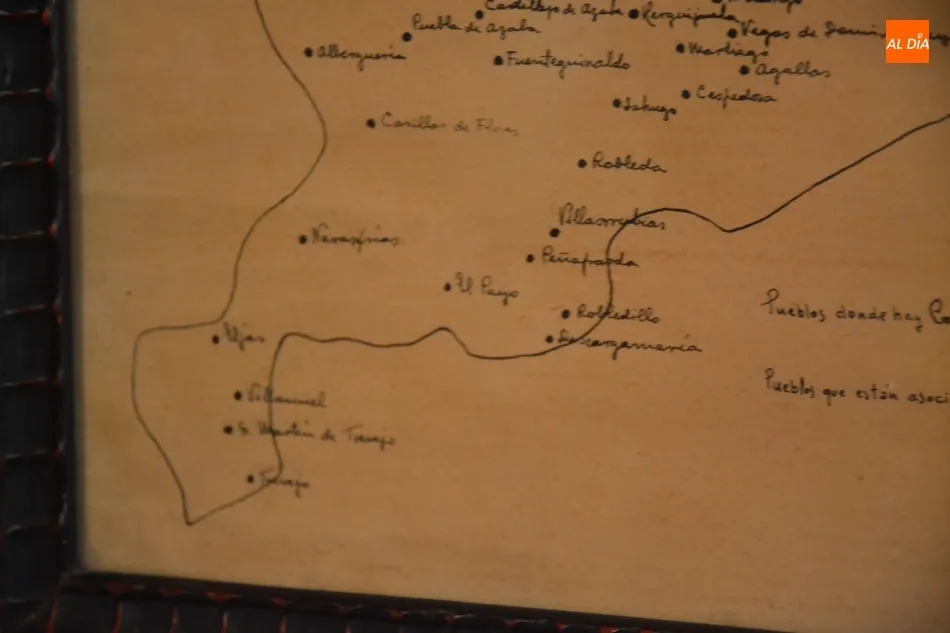 Castillejo de Azaba
Zerquijuela
Puebla de Azaba
Vegas de
AL DÍA
Martiago
Alberguería
Fuenteguinaldo
Agallas
Cespedosa
Sahugo
Casillas de Flores
Robleda
Villasrrubias
Navasfrias
Peñaparda
El Payo
Pueblos donde hay
Robledillo
Eljas
Descargamaría
Pueblos que están asoci
Villamiel
S. Martín de Trevejo
Trevejo